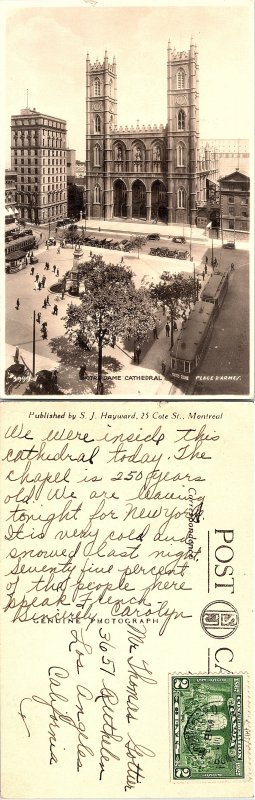 NOTRE DAME CATHEDRAL
PLACE D'ARMES
Published by S. J. Hayward, 25 Cote St., Montreal
We were inside this
cathedral today. The
chapel is 250 years
old. We are leaving
tonight for New York
It is very cold and
snowed last night
seventy five percent
of the people here
speak French.
Sincerely Carolyn
GENUINE PHOTOGRAPH
Correspondence
POST
CA
Mr Thomas
3651
Los Angeles
California
2 CENTS 2